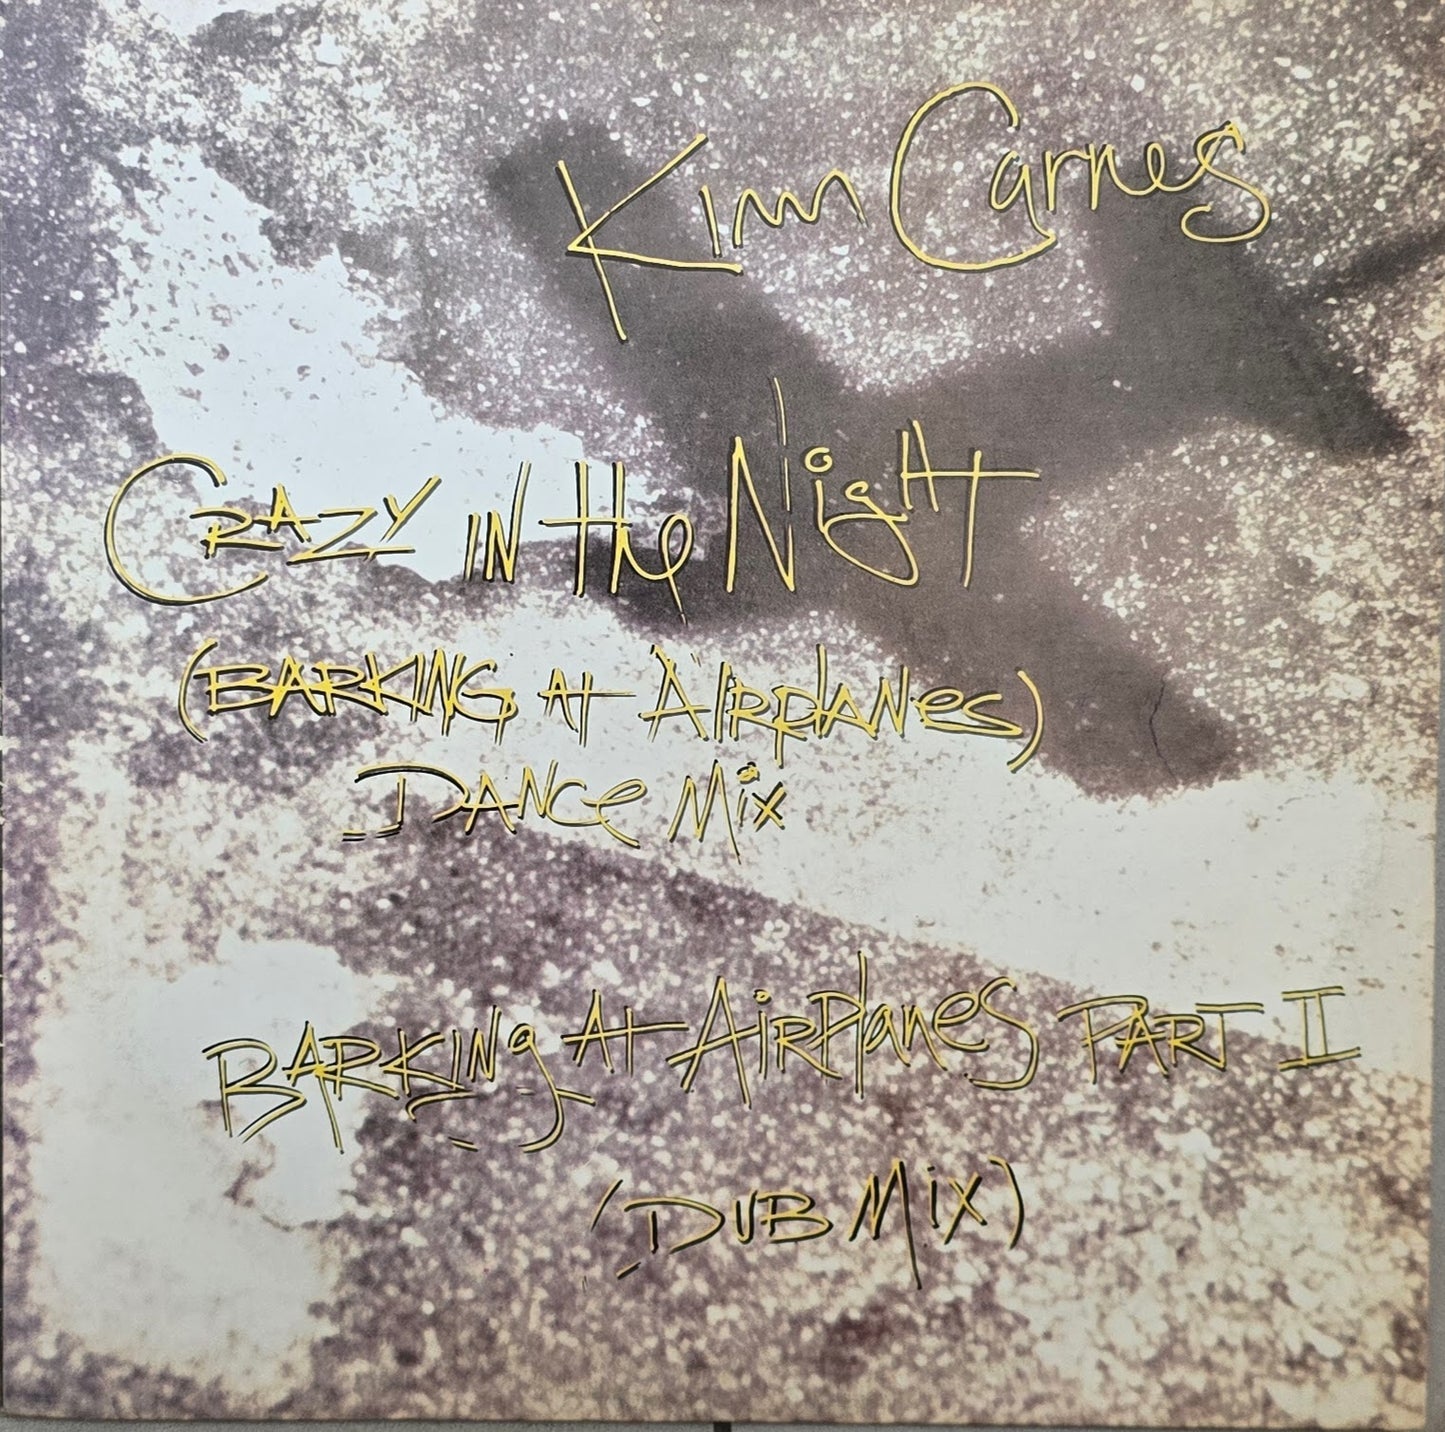 Kim Carnes
Crazy in the Night
(Barking at Airplanes)
Dance Mix
Barking at Airplanes Part II
(Dub Mix)